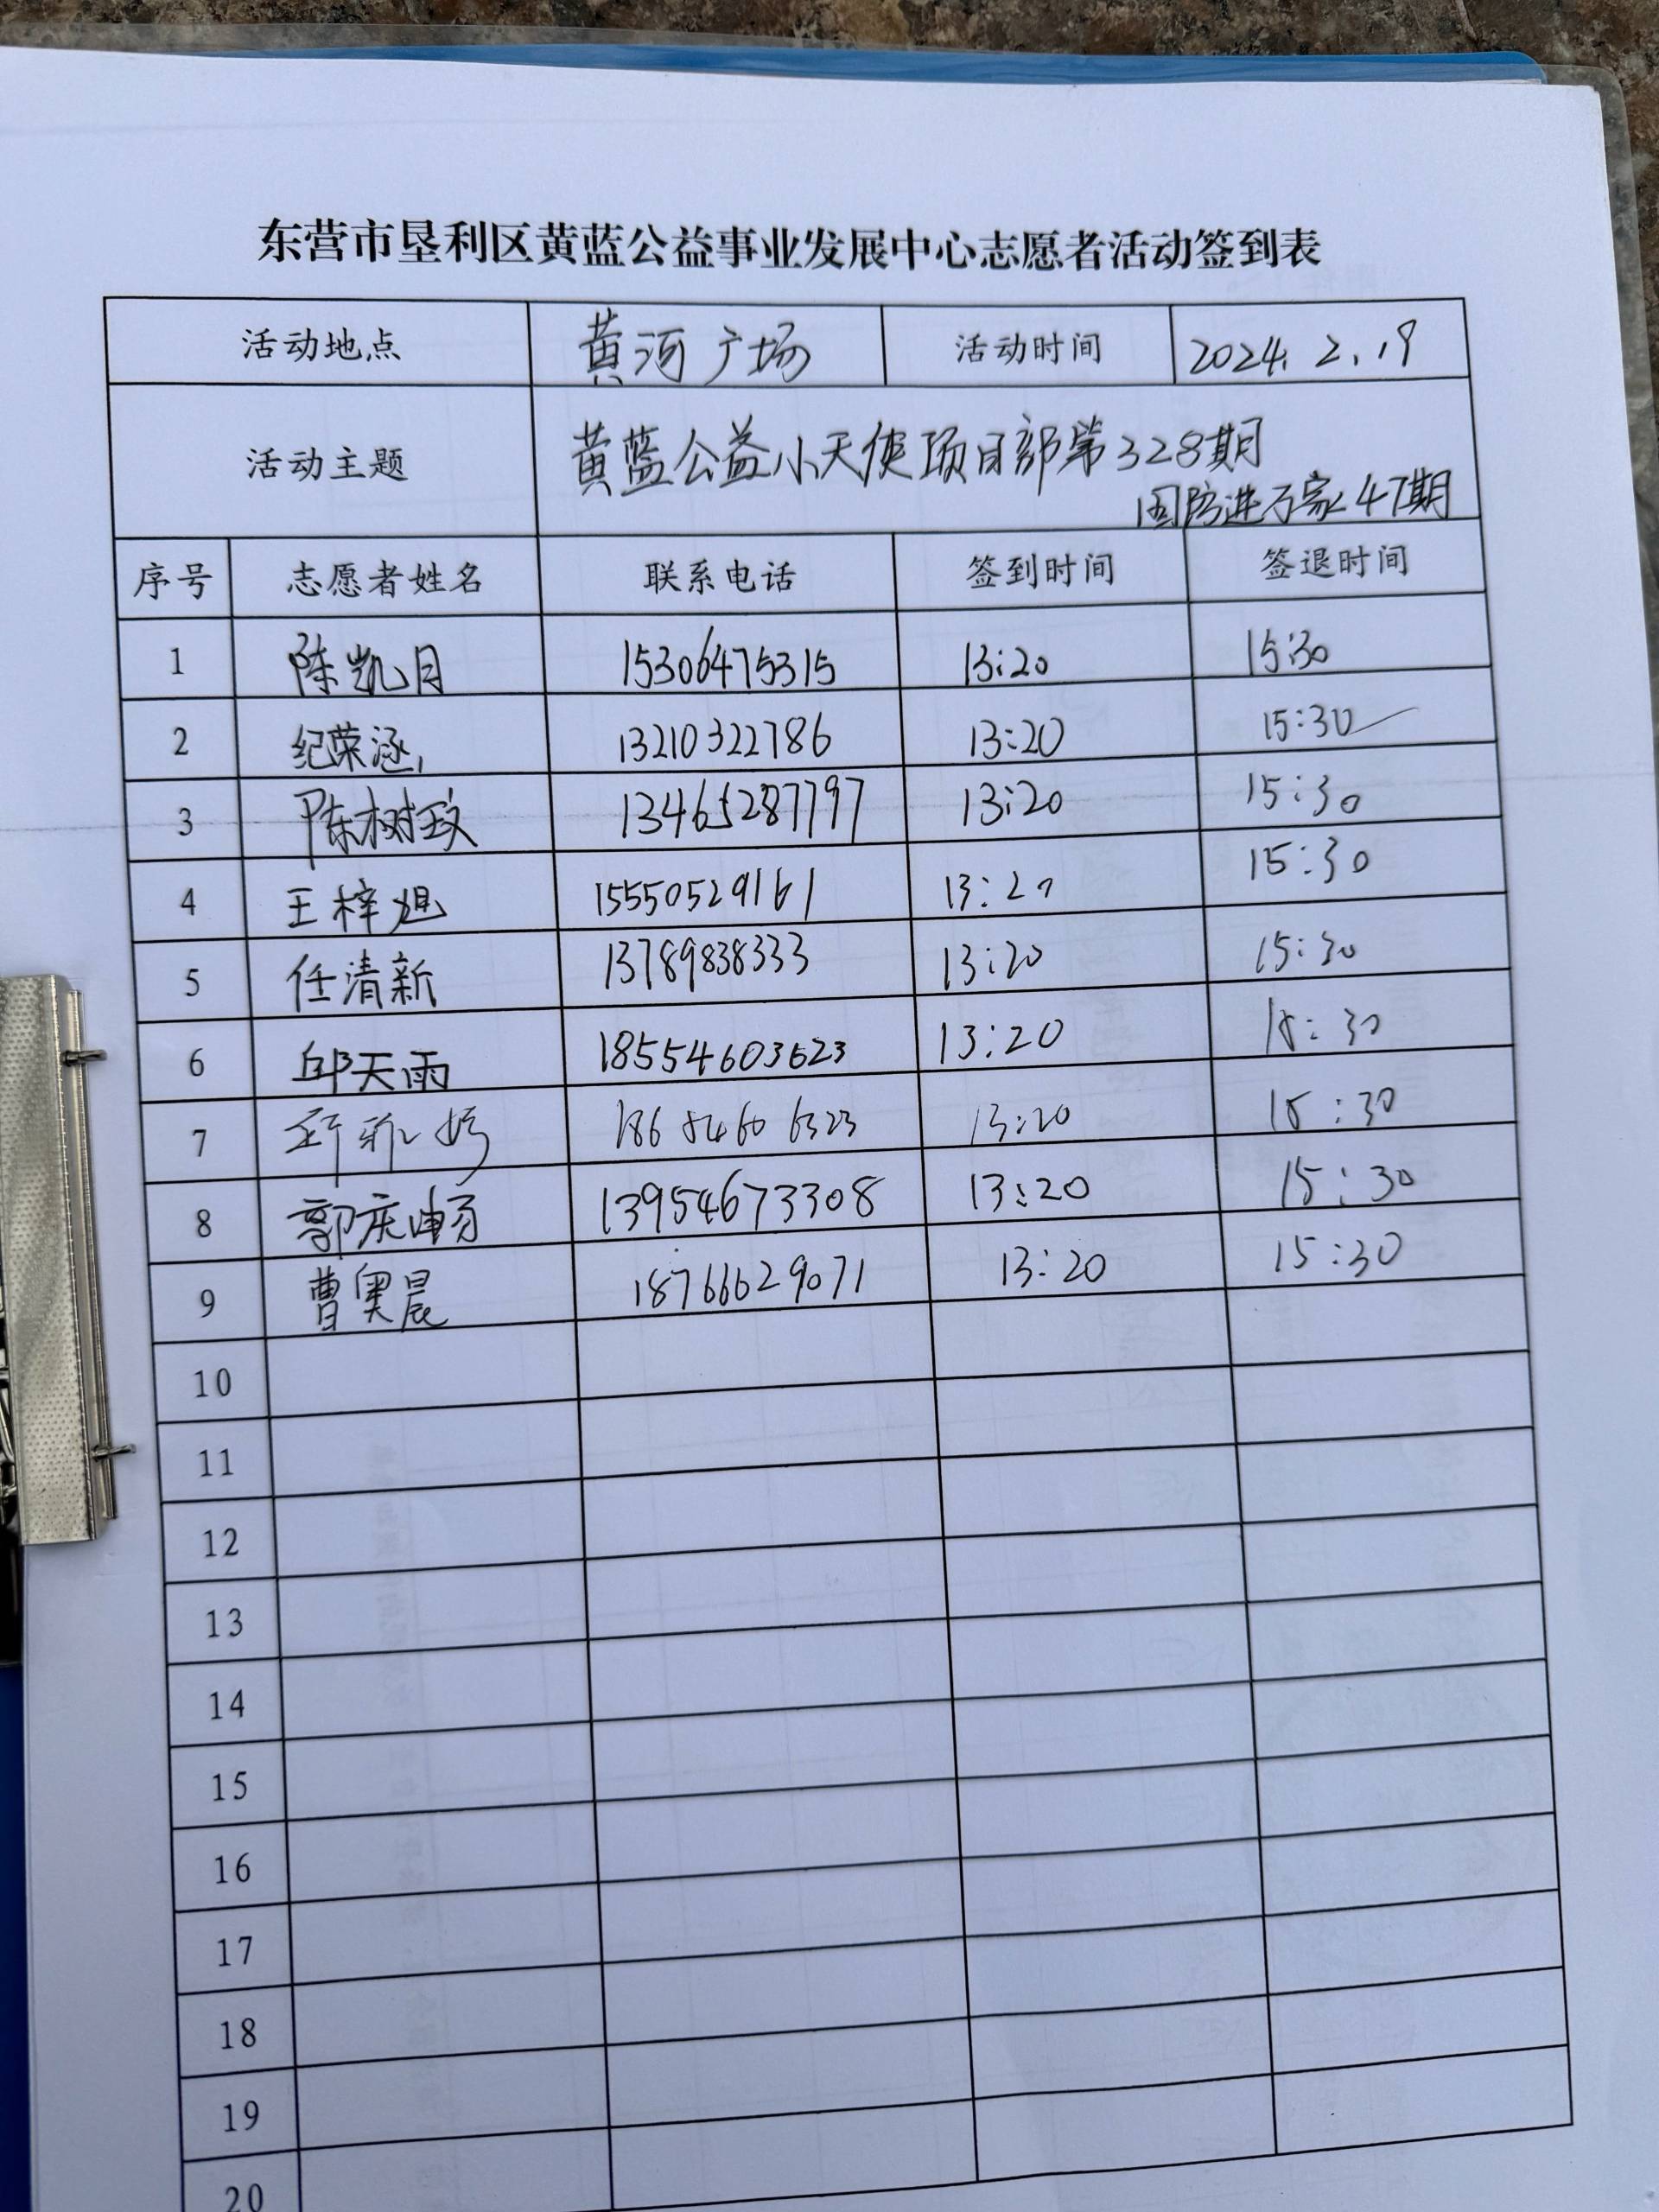 东营市垦利区黄蓝公益事业发展中心志愿者活动签到表
活动地点 黄河广场 活动时间 2024.2.19
活动主题 黄蓝公益小天使项目部第328期
国防进万家47期
序号 志愿者姓名 联系电话 签到时间 签退时间
1 陈凯月 15306475315 13:20 15:30
2 纪荣涵 13210322786 13:20 15:30
3 陈树玟 13465287797 13:20 15:30
4 王梓 15550529161 13:20 15:30
5 任清新 13789838333 13:20 15:30
6 邱天雨 18554603623 13:20 15:30
7 18654606323 13:20 15:30
8 郭庆畅 13954673308 13:20 15:30
9 曹奥晨 18766629071 13:20 15:30
10
11
12
13
14
15
16
17
18
19
20